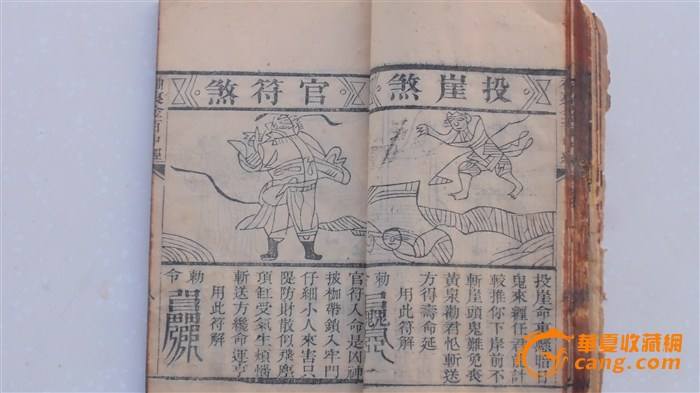 投崖煞
投崖命裏
鬼來纏任君
較推你下岸前不
斬崖頭鬼難免喪
黄泉勸君忙斬送
方得壽命延
用此符解
官符煞
官符入命是凶神
披枷帶鎖入牢門
仔細小人來害只
隄防財散似飛塵
項缸受氣生煩惱
斬送方纔命運亨
用此符解
勅令
華夏收藏網
cang.com